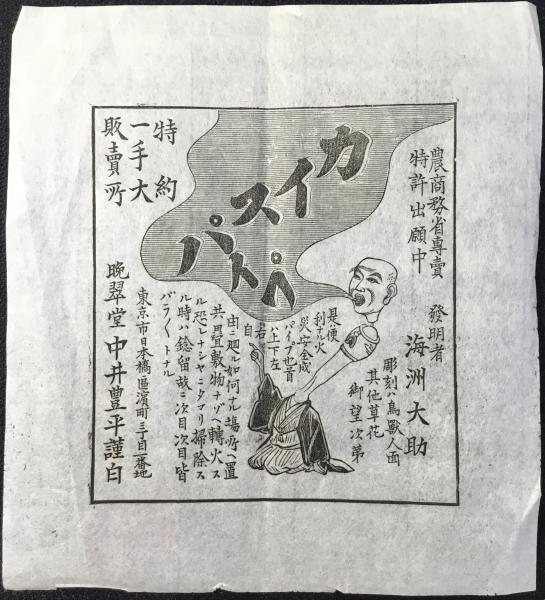 農商務省專賣
特許出願中
發明者
海洲大助
彫刻ハ鳥獸人面
其他草花
御望次第
カイスパ
パイトペ
是ハ便
利ナル火
災安全成
パイプ也首
ハ上下左
右自
由ニ廻ル如何ナル場所ヘ置
共畳敷物ナゾヘ轉火ス
ル恐レナシヤニタマリ掃除ス
ル時ハ鋲留故ニ次目次目皆
バラバラトナル
特約
一手大
販賣所
東京市日本橋區濱町三丁目一番地
晩翠堂中井豊平謹白